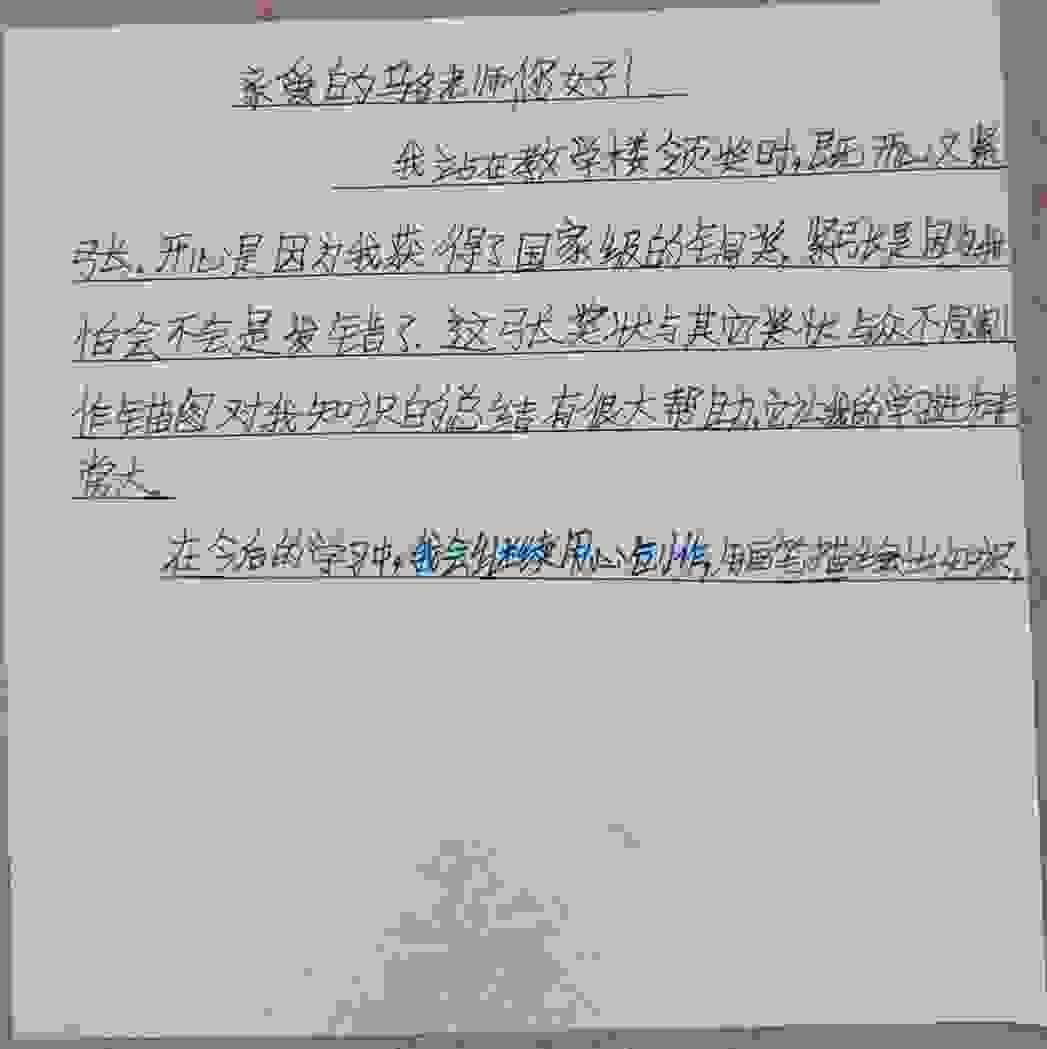 亲爱的马老师你好！
我站在教学楼领奖时，既开心又紧
张。开心是因为我获得了国家级的奖，紧张是因为
怕会不会是发错了。这张奖状与其它奖状与众不同制
作错图对我知识的总结有很大帮助，它让我的学习进步非
常大。
在今后的学习中，我会继续用心创作，用画笔描绘出知识。